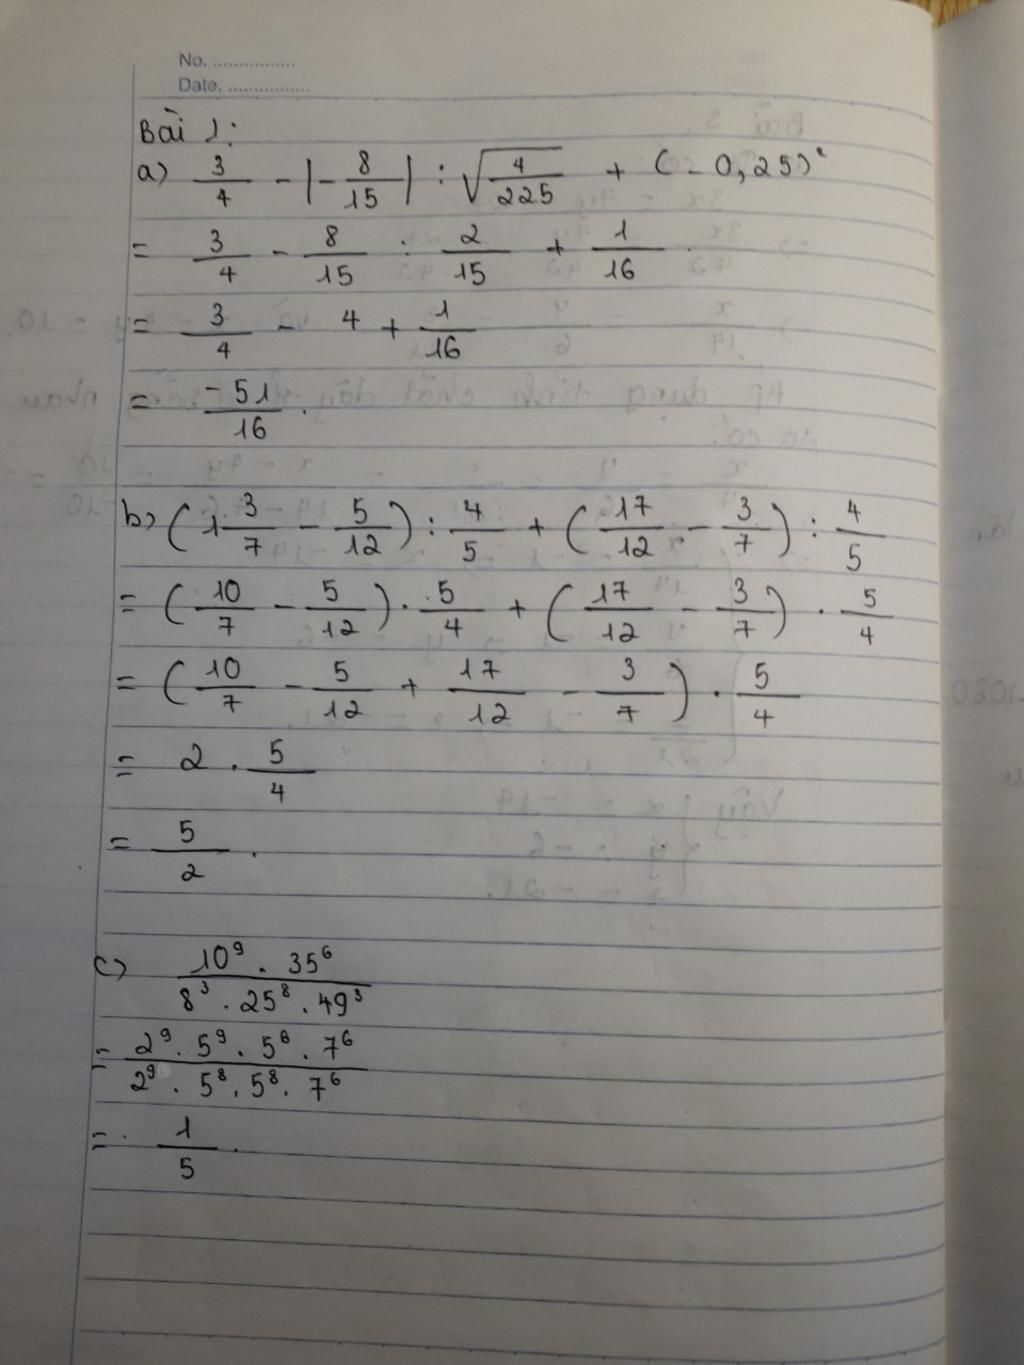 No. ................
Date. ................
Bài 1:
a) 3/4 - |-8/15| : √(4/225) + (-0,25)²
= 3/4 - 8/15 : 2/15 + 1/16
= 3/4 - 4 + 1/16
= -51/16.
b) (1 3/7 - 5/12) : 4/5 + (17/12 - 3/7) : 4/5
= (10/7 - 5/12) . 5/4 + (17/12 - 3/7) . 5/4
= (10/7 - 5/12 + 17/12 - 3/7) . 5/4
= 2 . 5/4
= 5/2.
c) 10⁹ . 35⁶ / 8³ . 25⁸ . 49³
= 2⁹ . 5⁹ . 5⁶ . 7⁶ / 2⁹ . 5⁸ . 5⁸ . 7⁶
= 1/5.